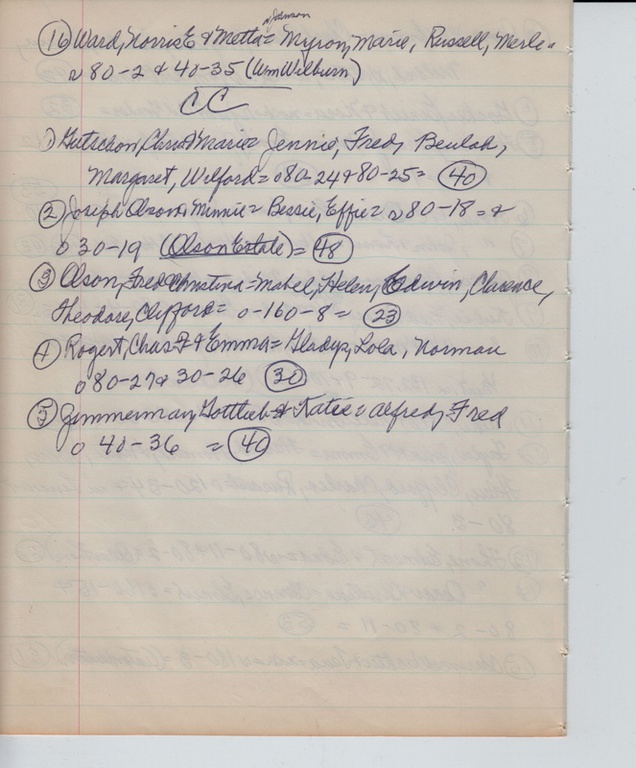 Johnson
(16) Ward, Norris E & Metta = Myron, Marie, Russell, Merle =
80-2 & 40-35 (Wm Wilburn)
CC
1) Gutschow, Chris & Marie = Jennie, Fred, Beulah,
Margaret, Wilford = o 80-24 & 80-25 = (40)
(2) Joseph Olson, Minnie = Bessie, Effie = 80-18 = &
o 30-19 (Olson Estate) = (48)
(3) Olson, Fred & Christina = Mabel, Helen, Edwin, Clarence,
Theodore, Clifford = o-160-8 = (23)
(4) Rogert, Chas F & Emma = Gladys, Lola, Norman
o 80-27 & 30-26 (30)
(5) Zimmerman, Gottlieb & Katie = Alfred, Fred
o 40-36 = (40)